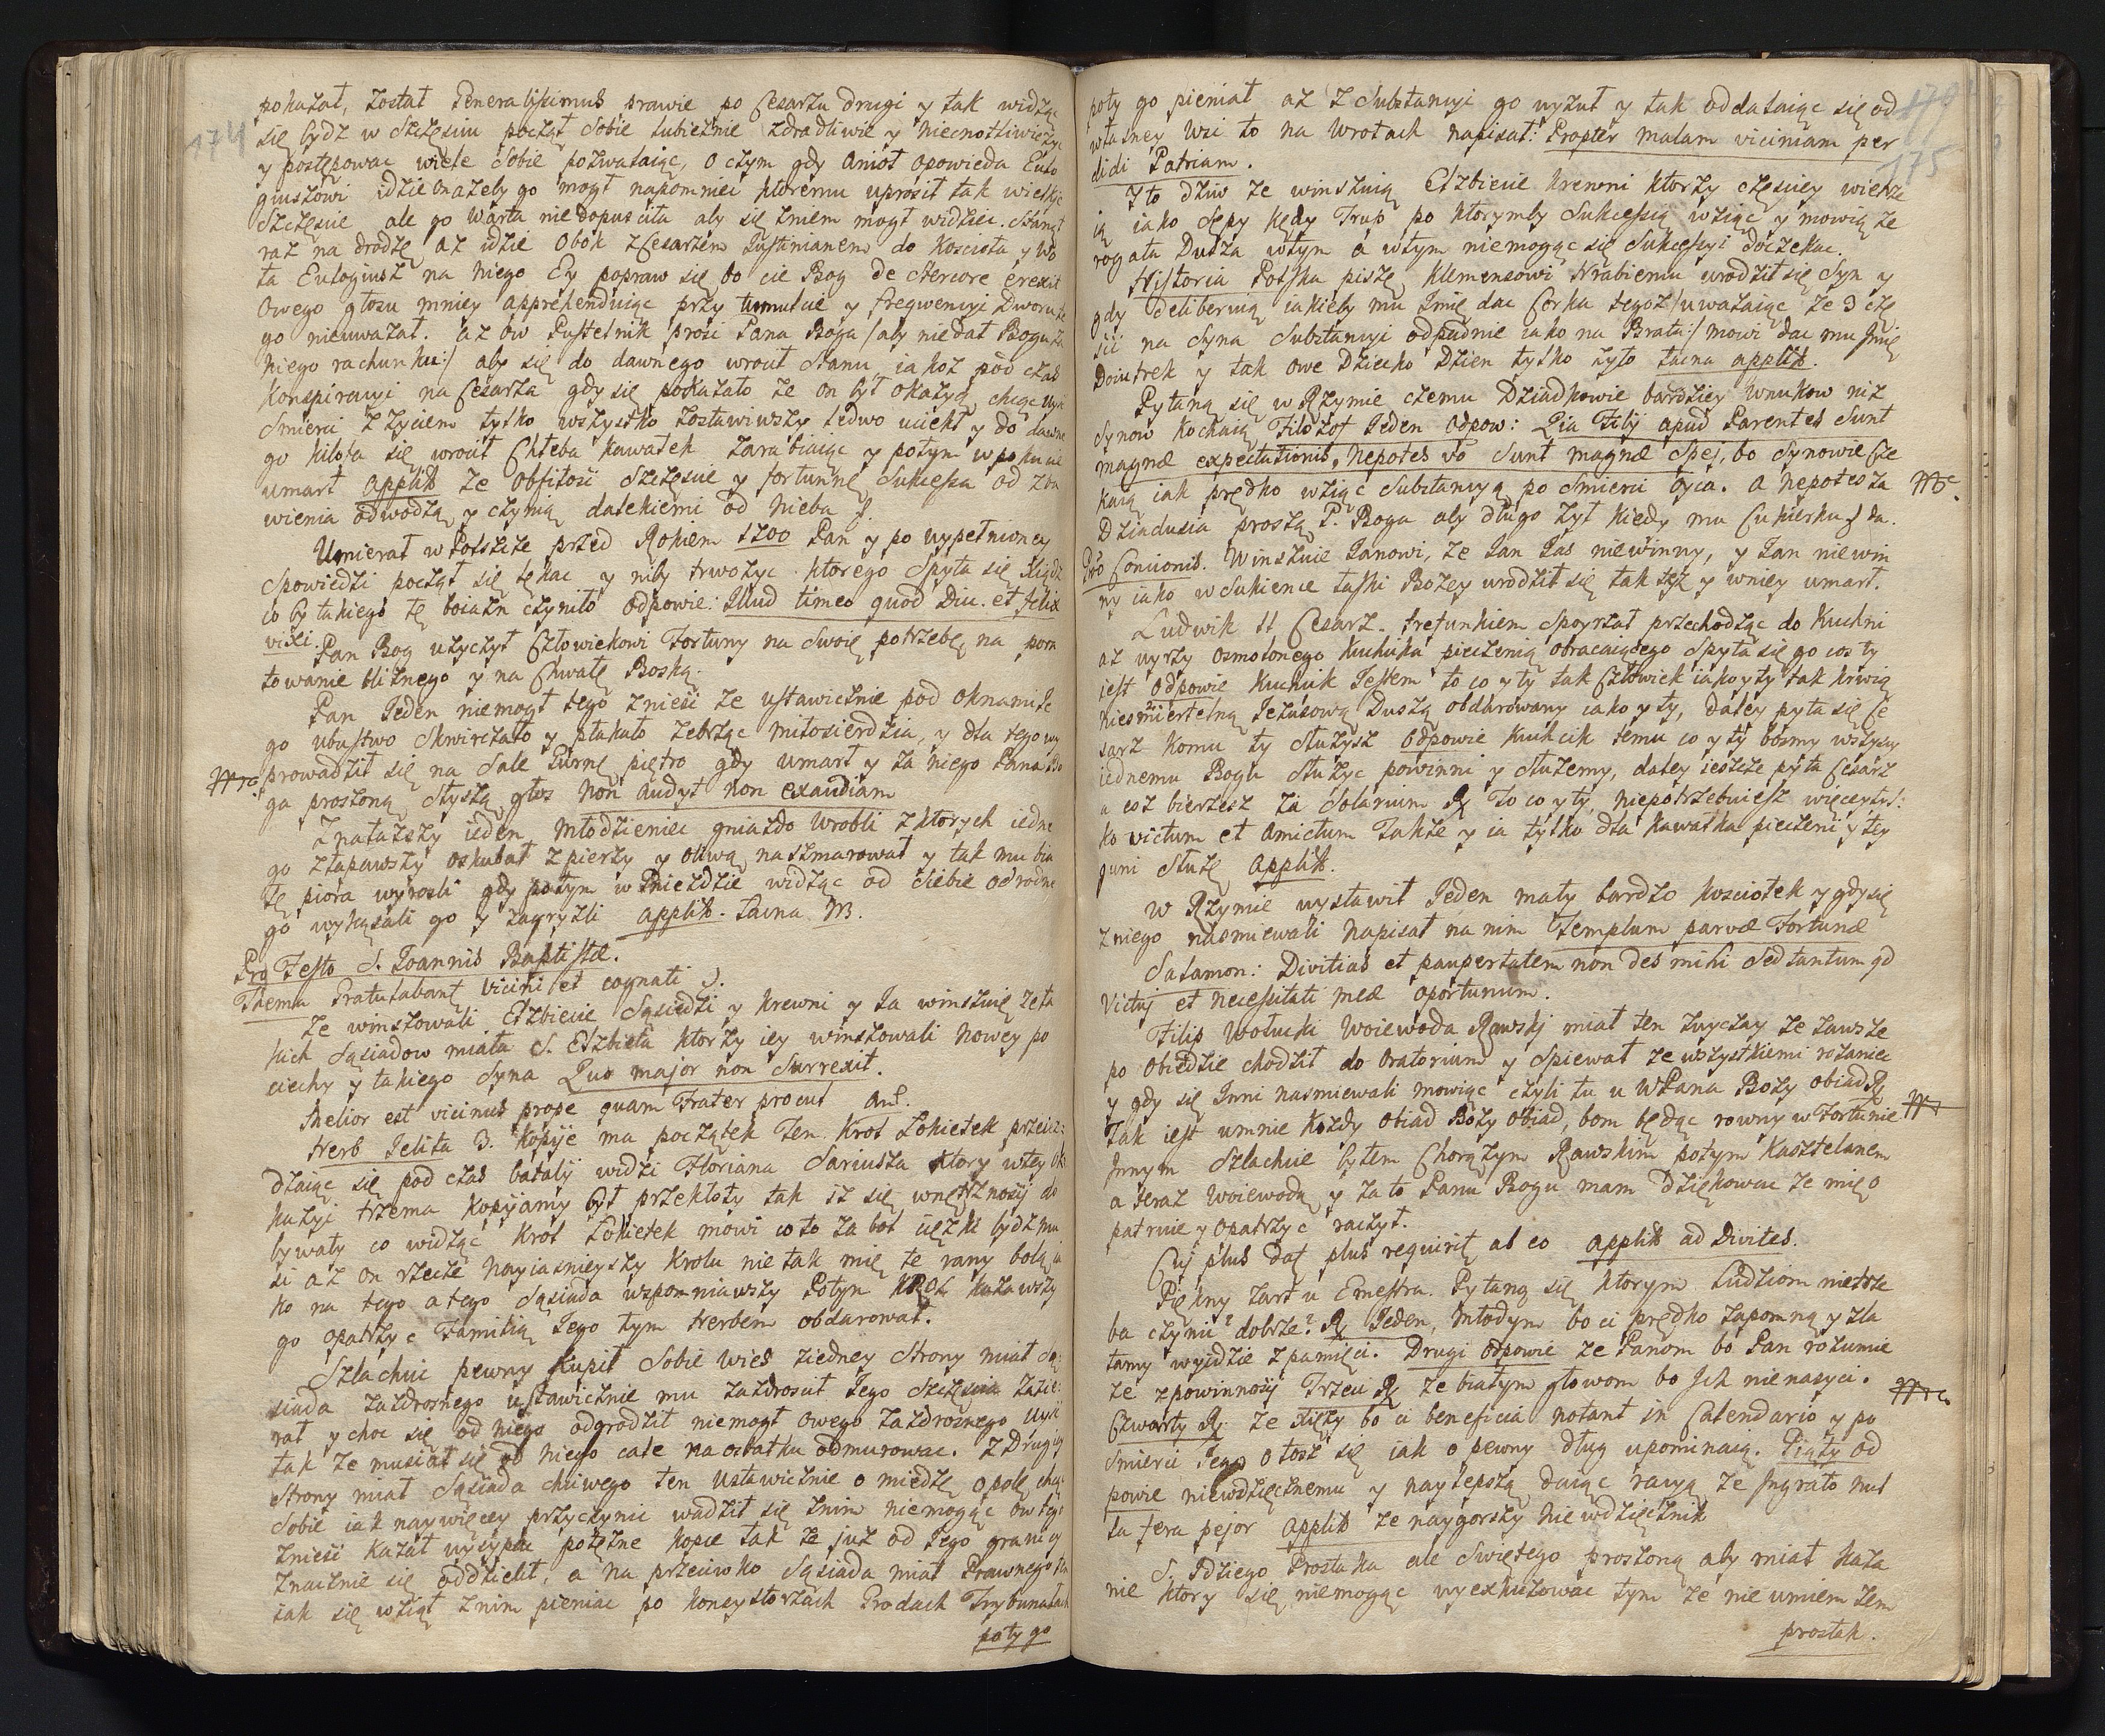 174
pokazał, został Generalissimus prawie po Cesarzu drugi y tak widząc
się bydz w szczęsciu począł sobie lubieżnie zdradliwie y niecnotliwie żyć
y postępować wiele sobie pozwalaiąc, o czym gdy Anioł opowieda Eulo
giuszowi idzie ażeby go mogł napomniec ktoremu uprosił tak wielkie
szczęscie ale go Warta niedopusciła aby się zniem mogł widziec. Stanął
raz na drodze aż idzie obok z Cesarzem Justinianem do Koscioła y wo
ła Eulogiusz na niego Ey popraw się bo cie Bog de stercore erexit
Owego głosu mniey apprehenduiąc przy tumulcie y frequencyi Dworu
go nieuważał. aż ow Pustelnik prosi Pana Boga /: aby niedał Bogu za
niego rachunku :/ aby się do dawnego wrocił Stanu iakoż pod czas
Konspiracyi na Cesarza gdy się pokazało że on był okazyą chcąc uysc
Smierci z życiem tylko wszystko zostawiwszy ledwo uciekł y do dawne
go kilofa się wrocił Chleba kawałek zarabiaiąc y potym w pokucie
umarł applik że obfitosc szczęscie y fortunne Sukcessa od zba
wienia odwodzą y czynią dalekiemi od Nieba
Umierał w Polszcze przed Rokiem 1700 Pan y po wypełnioney
Spowiedzi począł się lękac y niby trwożyc ktorego spyta się Xiądz
co by takiego tę boiazn czyniło odpowie: Illud timeo quod Diu et felix
vixi.
Pan Bog użyczył Człowiekowi Fortuny na swoię potrzebę, na pora
towanie bliznego y na Chwałę Boską.
Pan Jeden niemogł tego zniesc że ustawicznie pod oknami Je
go ubustwo skwirczało y płakało żebrząc miłosierdzia, y dla tego wy
prowadził się na Sale gurne piętro gdy umarł y za niego Pana Bo
ga proszono słyszą głos Non Audyt non exaudiam
Znalazszy ieden młodzieniec gniazdo wrobli z ktorych iedne
go złapawszy oskubał z pierzy y oliwą naszmarował y tak mu bia
łe piora wyrosli gdy potym w Gniezdzie widząc od siebie odrodne
go wykąsali go y zagryzli applik. Sacna M.
Pro Festo S. Joannis Baptistæ.
Thema Gratulabant Vicini et cognati
Że winszowali Elzbiecie Sąsiedzi y krewni y Ja winszuię że ta
kich Sąsiadow miała S. Elzbieta ktorzy iey winszowali nowey po
ciechy y takiego Syna Quo major non Surrexit.
Melior est vicinus prope quam Frater procul
Herb Jelita 3. Kopije ma początek ten. Krol Łokietek przeiez
dzaiąc się pod czas batalij widzi Floriana Sariusza ktory wtey o
kazyi trzema Kopijamy był przekłoty tak iż się wnętrznosci do
bywały co widząc Krol Łokietek mowi co to za bol ciężki bydz mu
si aż on rzecze Nayiasnieyszy Krolu nie tak mię te rany bolą ia
ko na tego a tego Sąsiada wspomniawszy Potym Krol kazawszy
go opatrzyc Familią Jego tym Herbem obdarował.
Szlachcic pewny kupił sobie wies ziedney Strony miał Są
siada zazdrosnego ustawicznie mu zazdroscił Jego szczęscia zazie
rał y choc się od niego odgrodził niemogł owego zazdrosnego uysc
tak że musiał się od niego całe na ostatku odmurowac. z Drugiey
Strony miał Sąsiada chciwego ten Ustawicznie o miedzę o pole chcąc
sobie iak naywięcey przyczynic wadził się znim niemogąc ow tego
zniesc kazał wysypac potężne kopce tak że już od Jego granicy
znacznie się oddzielił, a na przeciwko Sąsiada miał Prawnego ten
iak się wziął znim pieniac po konsystorzach Grodach Trybunałach
poty go
170
175
poty go pieniał aż z Substancyi go wyzuł y tak oddalaiąc się od
własney Wsi to na Wrotach napisał: Propter malam viciniam per
didi Patriam.
Y to dziw że winszuią Elzbiecie krewni ktorzy częsciey wierze
ią iako Sępy kędy Trup po ktorymby Sukcessią wziąc y mowią że
rogata Dusza wtym a wtym niemogąc się Sukcessyi doczekac.
Historia Polska pisze Klemensowi Hrabiemu urodził się Syn y
gdy deliberuią iakieby mu Jmię dac Corka tegoż /: uważaiąc że 3 czę
sci na Syna Substancyi odpadnie iako na Brata :/ mowi dac mu Jmię
Doiutrek y tak owe Dziecko Dzien tylko żyło tacna applik.
Pytaną się w Rzymie czemu Dziadkowie bardziey wnukow niz
Synow kochaią Filozof Jeden odpow: Quia Filij apud Parentes Sunt
magnæ expectationis, Nepotes vo Sunt magnæ Spej, bo Synowie cze
kaią iak prędko wziąc Substancyą po smierci Oyca. a Nepotes za
Dziadusia proszą P. Boga aby długo żył kiedy mu Cukierku da.
Pro Concionis. Winszuie Janowi, że Jan Jas niewinny, y Jan niewin
ny iako w Sukience Łaski Bożey urodził się tak też y wniey umarł.
Ludwik 11 Cesarz. trefunkiem spoyrzał przechodząc do Kuchni
aż uyrzy osmolonego Kuchcika pieczenią obracaiącego spyta się go cos ty
jest odpowie Kuchcik Jestem to co y ty tak Człowiek iako y ty tak krwią
niesmiertelną Jezusową Duszą obdarowany iako y ty, daley pyta się Ce
sarz komu ty służysz odpowie Kuchcik temu co y ty bosmy wszyscy
iednemu Bogu służyc powinni y służemy, daley ieszcze pyta Cesarz
a cosz bierzesz za Solarium R To co y ty, niepotrzebuiesz więcey tyl:
ko victum et amictum Także y ia tylko dla kawałka pieczeni y tey
guni służę applik.
W Rzymie wystawił Jeden mały bardzo kosciołek y gdy się
z niego nasmiewali napisał na nim Templum parvæ Fortunæ
Salamon: Divitias et paupertatem non des mihi Sed tantum qd
Victuj et necessitati meæ oportunum.
Filip Wołucki Woiewoda Rawski miał ten zwyczay że zawsze
po obiedzie chodził do Oratorium y Spiewał ze wszystkiemi rożaniec
y gdy się Jnni nasmiewali mowiąc czyli tu u WPana Boży obiad R
Tak iest umnie Każdy obiad Boży Obiad, bom będąc rowny w Fortunie
Jnnym Szlachcie byłem Chorążym Rawskim potym Kasztelanem
a teraz Woiewodą y za to Panu Bogu mam dziękowac że mię o
patruie y opatrzyc raczył.
Cuj plus dat plus requirit ab eo applik ad Divites.
Piękny żart u Emestra. Pytaną się ktorym Ludziom nietrze
ba czynic dobrze? R Jeden, Młodym bo ci prędko zapomną y zla
tamy wyidzie z pamięci. Drugi odpowie że Panom bo Pan rozumie
że z powinnosci Trzeci R że białym głowom bo Jch nienasyci.
Czwarty R. że Xięży bo ci beneficia notant in Calendario y po
smierci Jego o tosz się iak o pewny dług upominaią. Piąty od
powie niewdzięcznemu y naylepszą daiąc racyą że Jngrato nul
la fera pejor applik że naygorszy Niewdzięcznik
S. Jdziego Prostaka ale Swiętego proszono aby miał Kaza
nie ktory się niemogąc wyexkuzowac tym że nie umiem Jem
prostak.